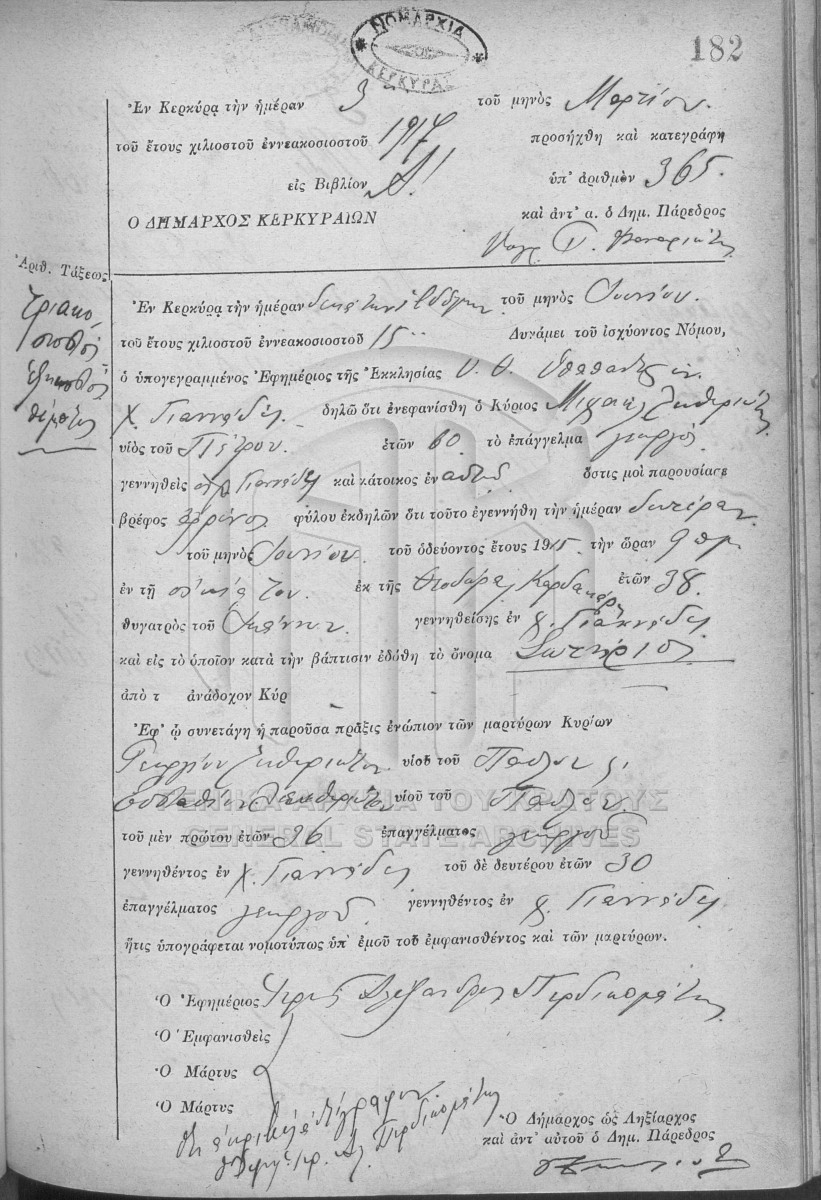 ΝΟΜΑΡΧΙΑ
ΚΕΡΚΥΡΑΣ
182
Ἐν Κερκύρᾳ τὴν ἡμέραν 3 τοῦ μηνὸς Μαρτίου.
τοῦ ἔτους χιλιοστοῦ ἐννεακοσιοστοῦ 1917 προσήχθη καὶ κατεγράφη
εἰς Βιβλίον Α! ὑπ' ἀριθμὸν 365.
Ο ΔΗΜΑΡΧΟΣ ΚΕΡΚΥΡΑΙΩΝ καὶ ἀντ' α. ὁ Δημ. Πάρεδρος
Ἀριθ. Τάξεως
Τριακο
σιοστὸς
ἑξηκοστὸς
πέμπτος
Ἐν Κερκύρᾳ τὴν ἡμέραν δεκάτην ἑβδόμην τοῦ μηνὸς Ἰουνίου.
τοῦ ἔτους χιλιοστοῦ ἐννεακοσιοστοῦ 15 Δυνάμει τοῦ ἰσχύοντος Νόμου,
ὁ ὑπογεγραμμένος Ἐφημέριος τῆς Ἐκκλησίας Υ. Θ. Ὑπαπαντῆς
χ. Γιαννάδες. δηλῶ ὅτι ἐνεφανίσθη ὁ Κύριος Μιχαὴλ
υἱὸς τοῦ Πέτρου. ἐτῶν 60 τὸ ἐπάγγελμα γεωργὸς
γεννηθεὶς Γιαννάδες καὶ κάτοικος ἐν αὐτῷ ὅστις μοὶ παρουσίασε
βρέφος ἄρρενος φύλου ἐκδηλῶν ὅτι τοῦτο ἐγεννήθη τὴν ἡμέραν δευτέραν
τοῦ μηνὸς Ἰουνίου. τοῦ ὁδεύοντος ἔτους 1915. τὴν ὥραν 9 πμ
ἐν τῇ οἰκίᾳ του. ἐκ τῆς Θεοδώρας Καρδακάρη ἐτῶν 38.
θυγατρὸς τοῦ γεννηθείσης ἐν χ. Γιαννάδες.
καὶ εἰς τὸ ὁποῖον κατὰ τὴν βάπτισιν ἐδόθη τὸ ὄνομα Σωτήριος
ἀπὸ τ ἀνάδοχον Κύρ
Ἐφ' ᾧ συνετάγη ἡ παροῦσα πρᾶξις ἐνώπιον τῶν μαρτύρων Κυρίων
Γεωργίου υἱοῦ τοῦ Παύλου
Εὐσταθίου υἱοῦ τοῦ Παύλου
ΓΕΝΙΚΑ ΑΡΧΕΙΑ ΤΟΥ ΚΡΑΤΟΥΣ
GENERAL STATE ARCHIVES
τοῦ μὲν πρώτου ἐτῶν 36 ἐπαγγέλματος γεωργοῦ
γεννηθέντος ἐν χ. Γιαννάδες τοῦ δὲ δευτέρου ἐτῶν 30
ἐπαγγέλματος γεωργοῦ. γεννηθέντος ἐν χ. Γιαννάδες.
ἥτις ὑπογράφεται νομοτύπως ὑπ' ἐμοῦ τοῦ ἐμφανισθέντος καὶ τῶν μαρτύρων.
Ὁ Ἐφημέριος Ἱερεὺς Ἀλέξανδρος Περδικομάτης
Ὁ Ἐμφανισθεὶς
Ὁ Μάρτυς
Ὁ Μάρτυς
ἀκριβὲς ἀντίγραφον
Ἀλ. Περδικομάτης
Ὁ Δήμαρχος ὡς Ληξίαρχος
καὶ ἀντ' αὐτοῦ ὁ Δημ. Πάρεδρος